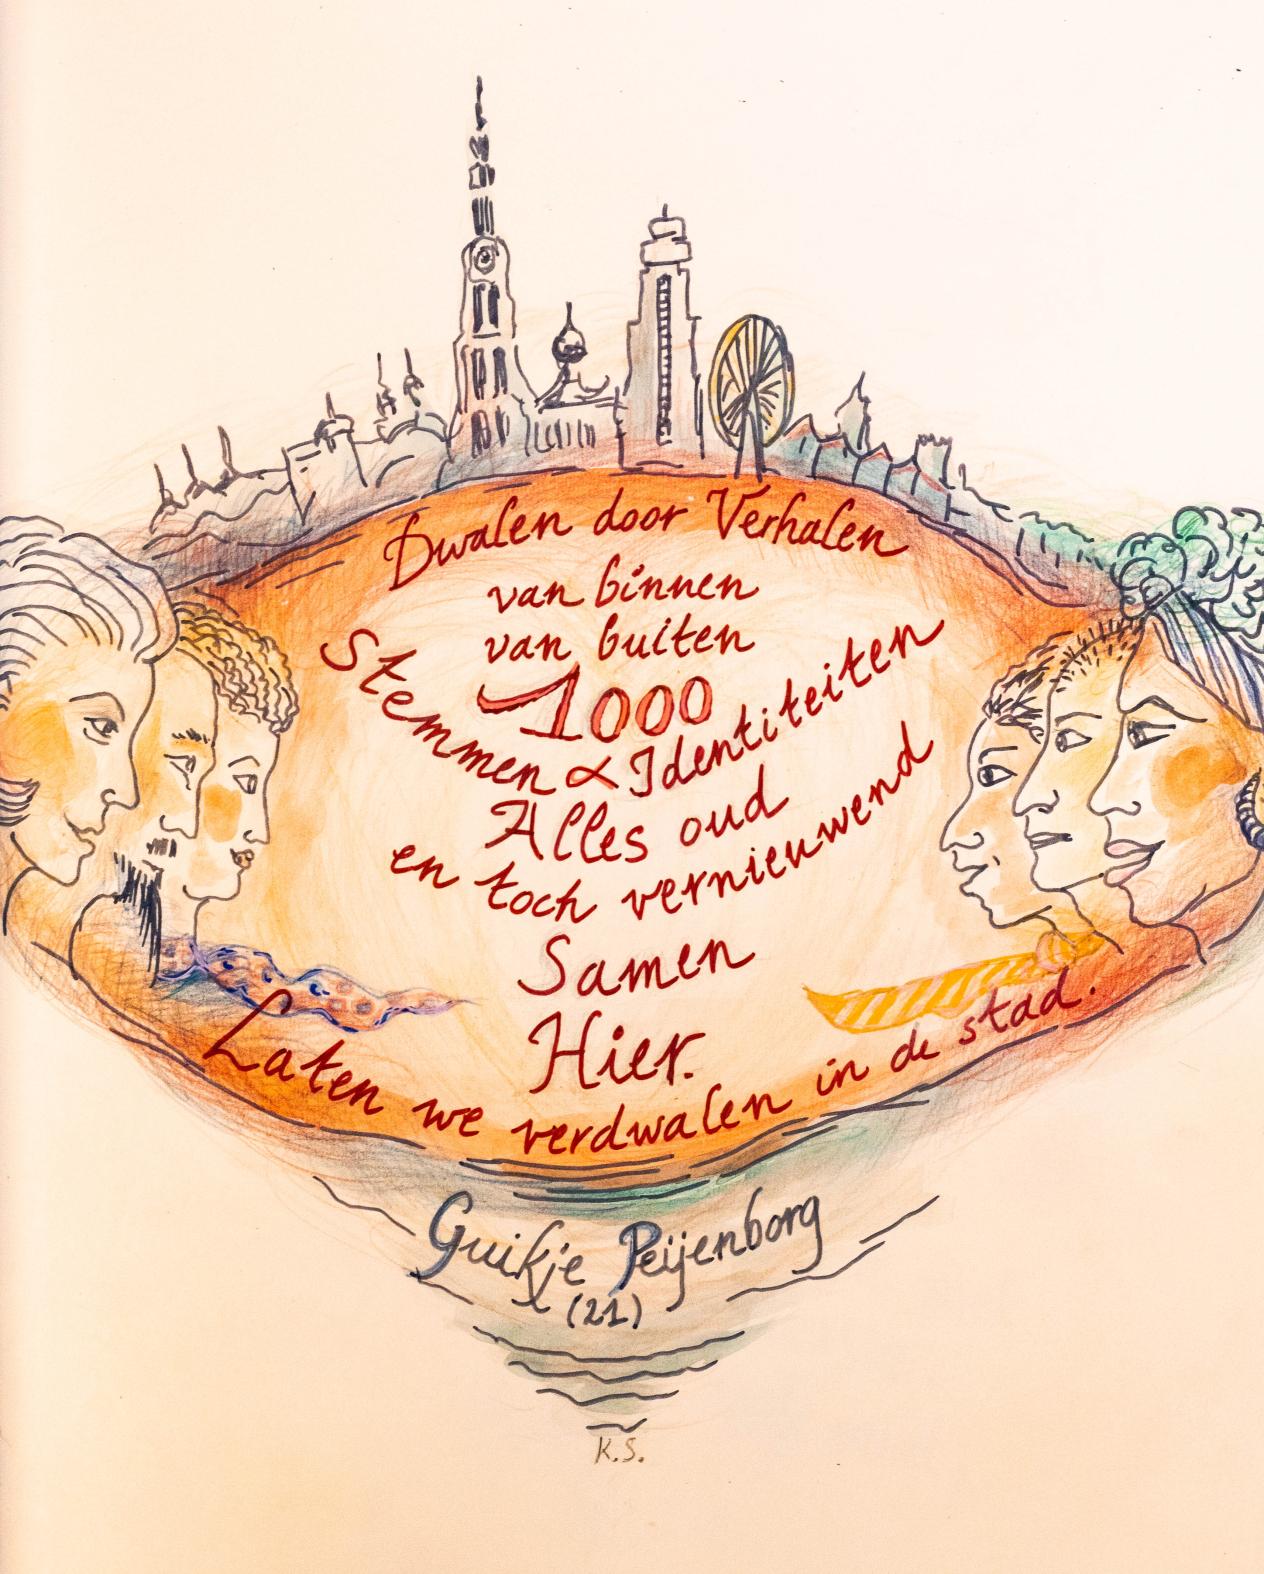 Dwalen door Verhalen
van binnen
van buiten
1000
Stemmen & Identiteiten
Alles oud
en toch vernieuwend
Samen
Hier.
Laten we verdwalen in de stad.
Guikje Peijenborg
(21)
K.S.